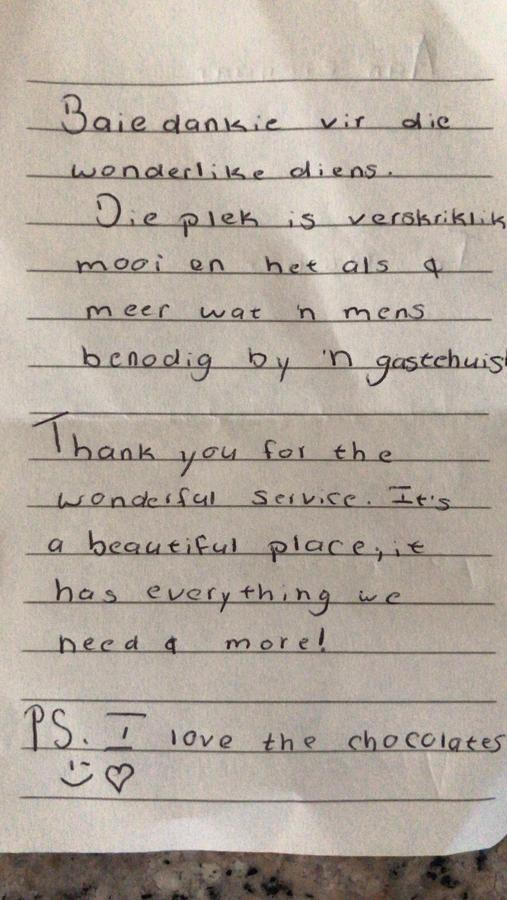 Baie dankie vir die
wonderlike diens.
Die plek is verskriklik
mooi en het als &
meer wat 'n mens
benodig by 'n gastehuis!
Thank you for the
wonderful service. It's
a beautiful place, it
has everything we
need & more!
PS. I love the chocolates